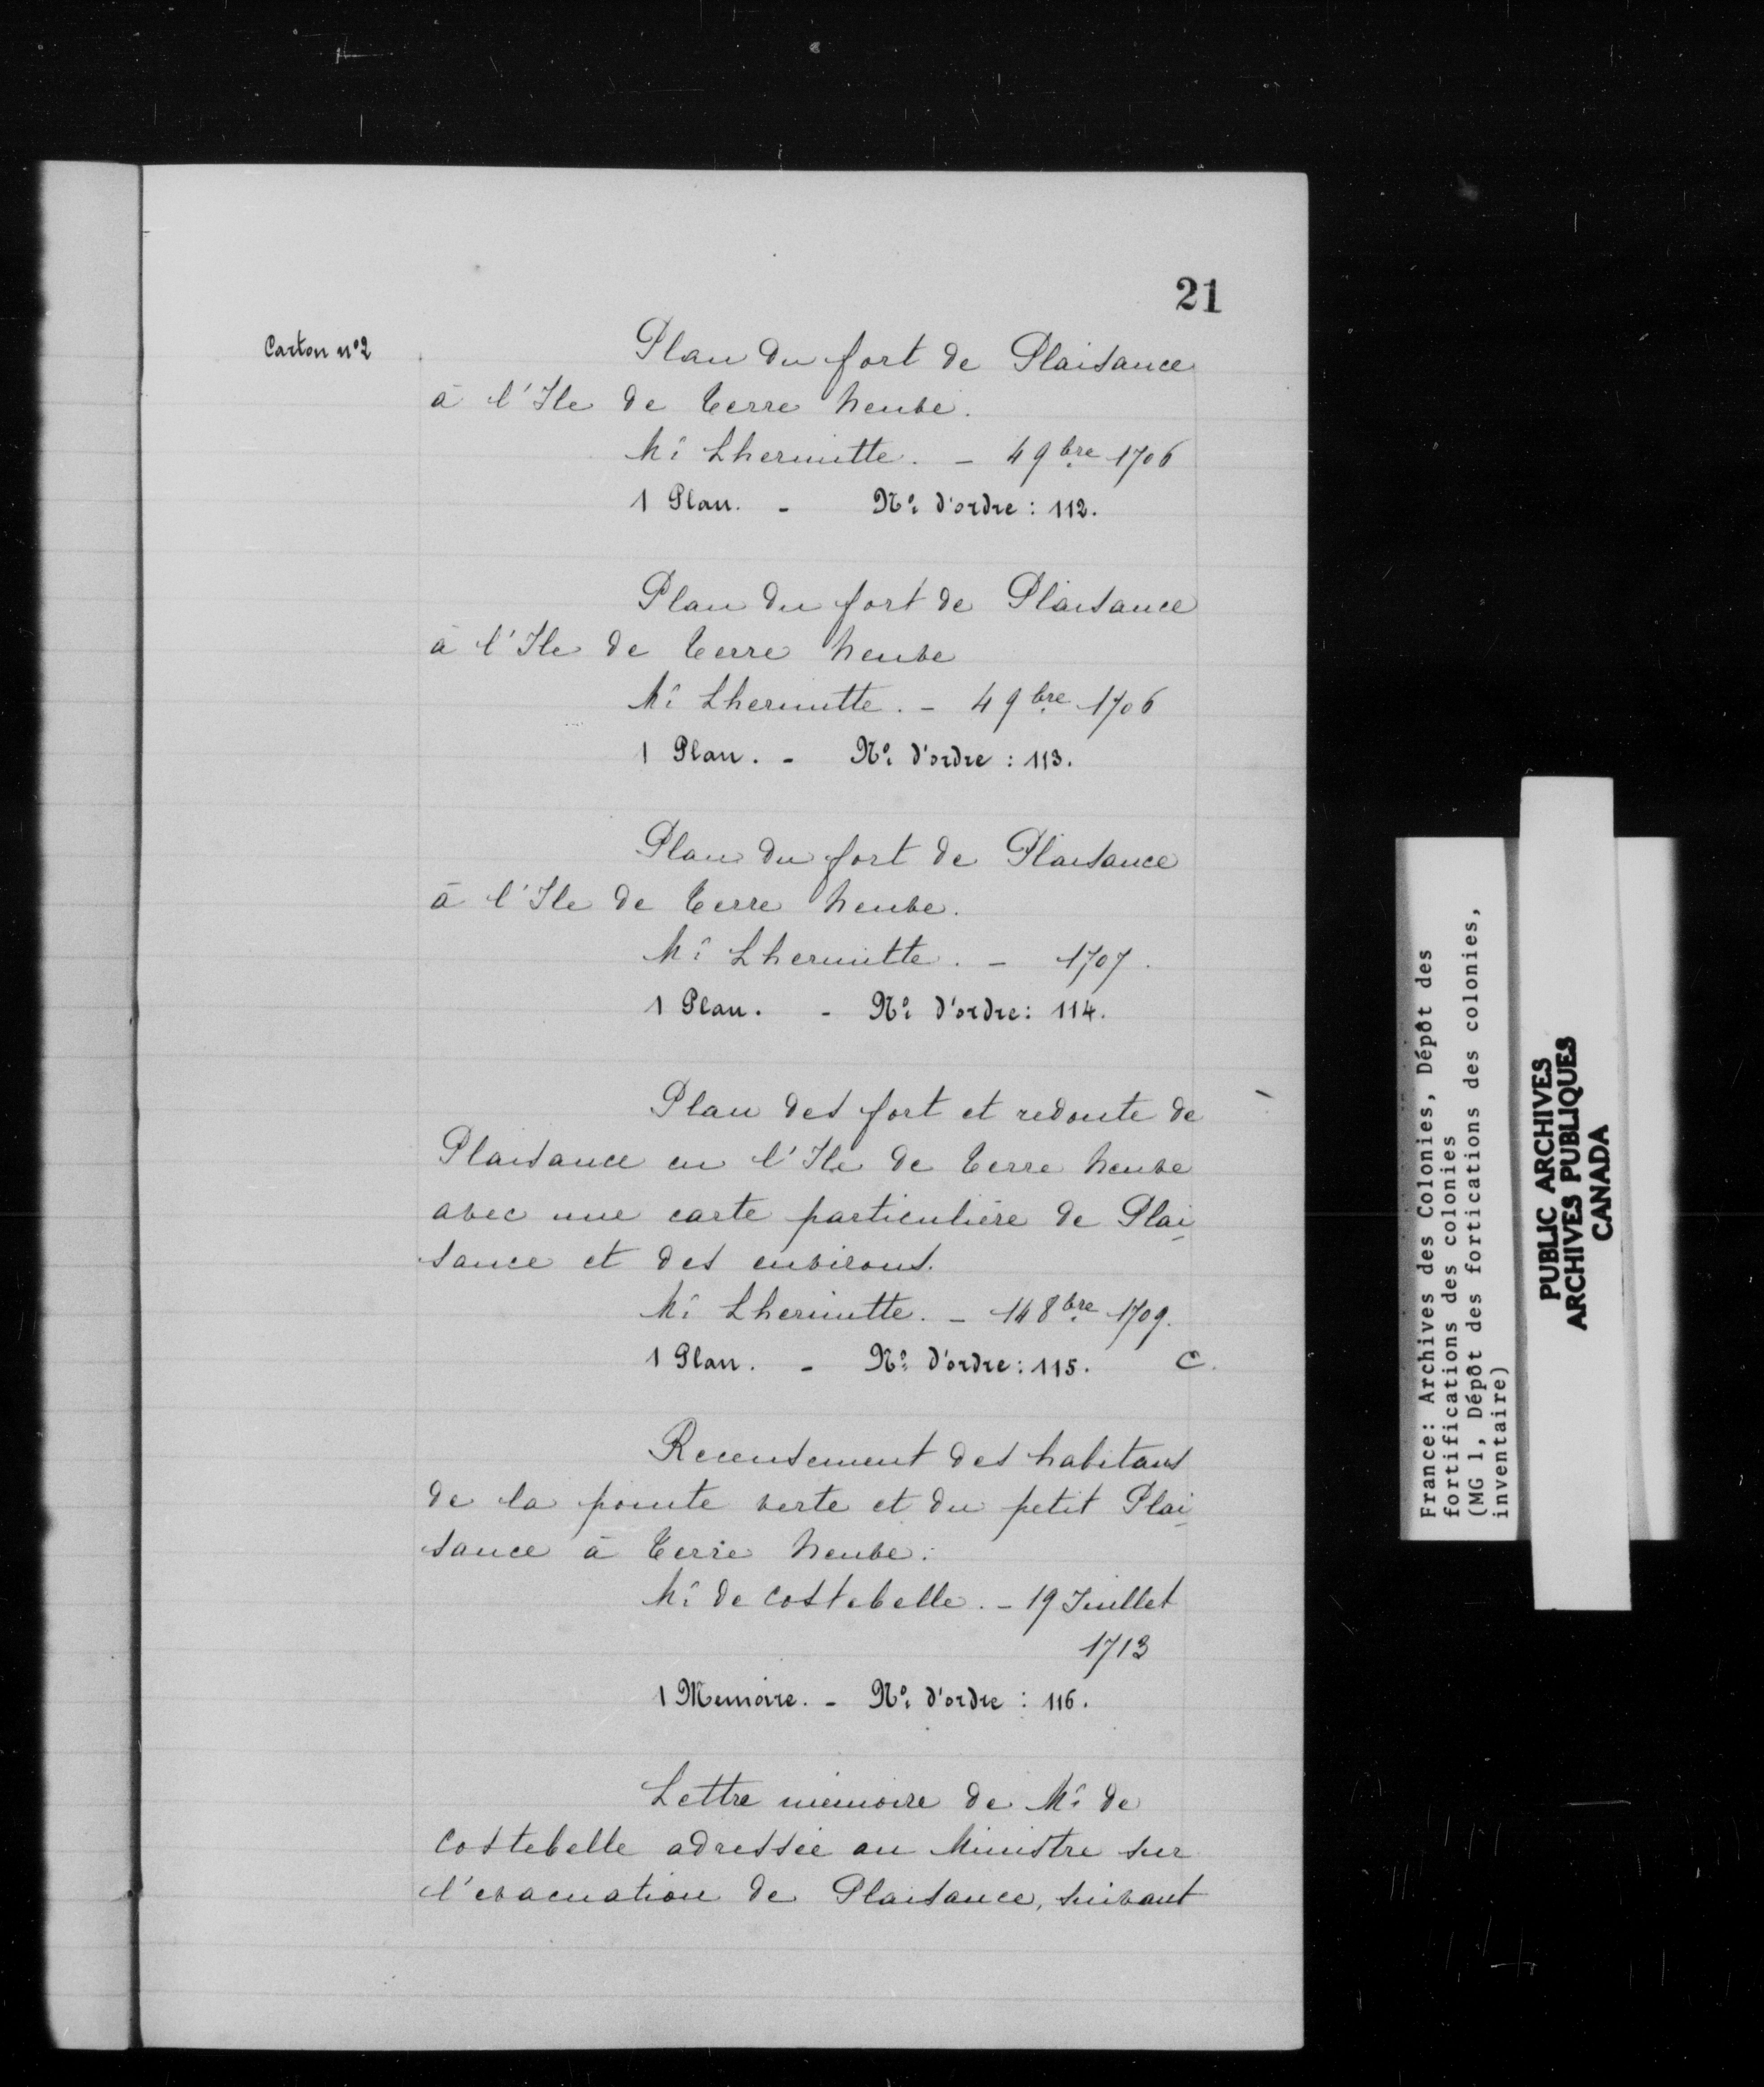 21
Carton n° 2
Plan du fort de Plaisance
à l'Ile de Terre neuve.
Mr Lhermitte. - 4 9bre 1706
1 Plan. - No d'ordre : 112.
Plan du fort de Plaisance
à l'Ile de Terre neuve
Mr Lhermitte. - 4 9bre 1706
1 Plan. - No d'ordre : 113.
Plan du fort de Plaisance
à l'Ile de Terre neuve.
Mr Lhermitte. - 1707.
1 Plan. - No d'ordre : 114.
Plan des fort et redoute de
Plaisance en l'Ile de Terre neuve
avec une carte particulière de Plai-
sance et des environs.
Mr Lhermitte. - 14 8bre 1709.
1 Plan. - No d'ordre : 115. C.
Recensement des habitans
de la pointe verte et du petit Plai-
sance à Terre neuve.
Mr de Costebelle. - 19 Juillet
1713
1 Memoire. - No d'ordre : 116.
Lettre mémoire de Mr de
Costebelle adressée au Ministre sur
l'evacuation de Plaisance, suivant
France: Archives des Colonies, Dépôt des
fortifications des colonies
(MG 1, Dépôt des fortications des colonies,
inventaire)
PUBLIC ARCHIVES
ARCHIVES PUBLIQUES
CANADA